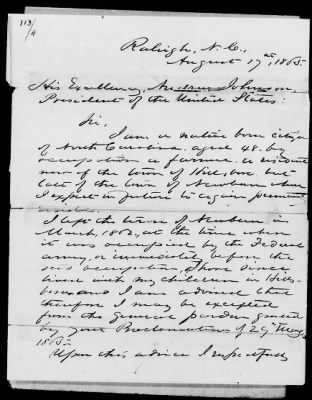 113/4
Raleigh, N.C.,
August 17th, 1865.
His Excellency, Andrew Johnson,
President of the United States:
Sir,
I am a native born citizen
of North Carolina, aged 48. by
occupation a farmer. a resident
now of the town of Hillsboro. but
late of the town of Newbern where
I expect in future to again
I left the town of Newbern in
March, 1862, at the time when
it was occupied by the Federal
army, or immediately before the
said occupation, I have since
lived with my children in Hills-
boro and I am advised that
therefore I may be excepted
from the general pardon granted
by your Proclamation of 29 May,
1865.
Upon this advice I respectfully